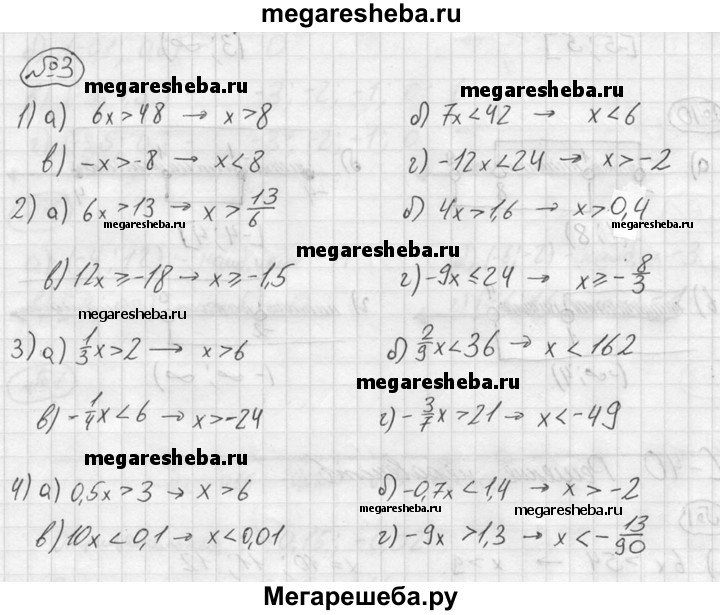 megaresheba.ru
№3
megaresheba.ru
1) а) 6x>48 → x>8 б) 7x<42 → x<6
в) -x>-8 → x<8 г) -12x<24 → x>-2
2) а) 6x>13 → x>13/6 б) 4x>1,6 → x>0,4
megaresheba.ru megaresheba.ru
megaresheba.ru
в) 12x≥-18 → x≥-1,5 г) -9x≤24 → x≥-8/3
megaresheba.ru
3) а) 1/3x>2 → x>6 б) 2/9x<36 → x<162
megaresheba.ru
в) -1/4x<6 → x>-24 г) -3/7x>21 → x<-49
megaresheba.ru
4) а) 0,5x>3 → x>6 б) -0,7x<1,4 → x>-2
megaresheba.ru
в) 10x<0,1 → x<0,01 г) -9x>1,3 → x<-13/90
megaresheba.ru
Мегарешеба.ру